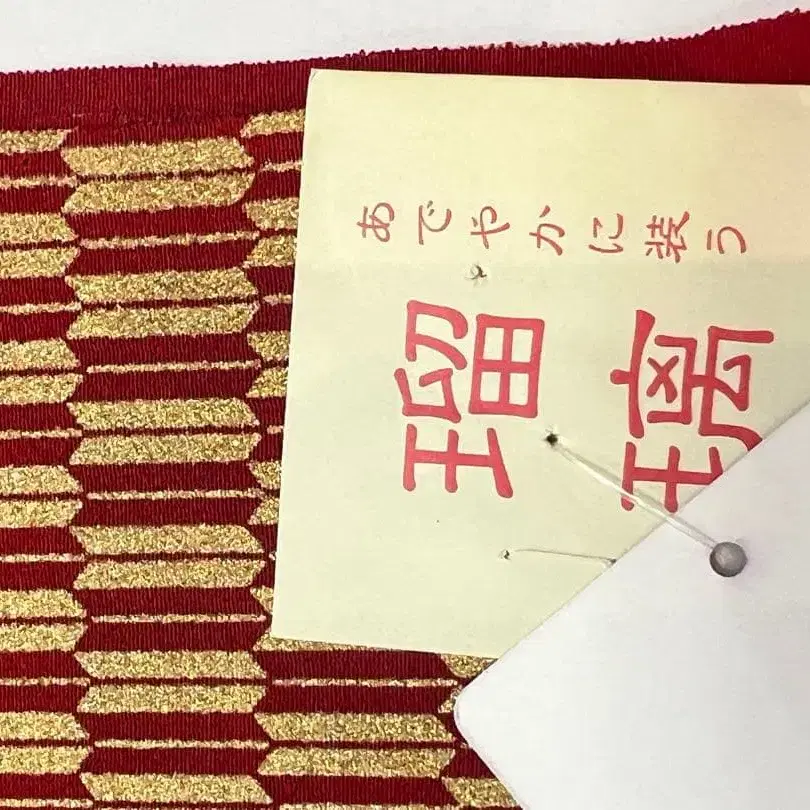 あでやかに装う
瑠璃